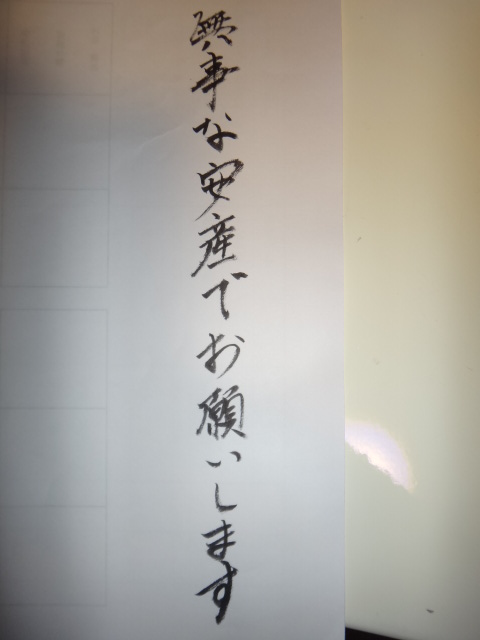 無事な安産でお願いします